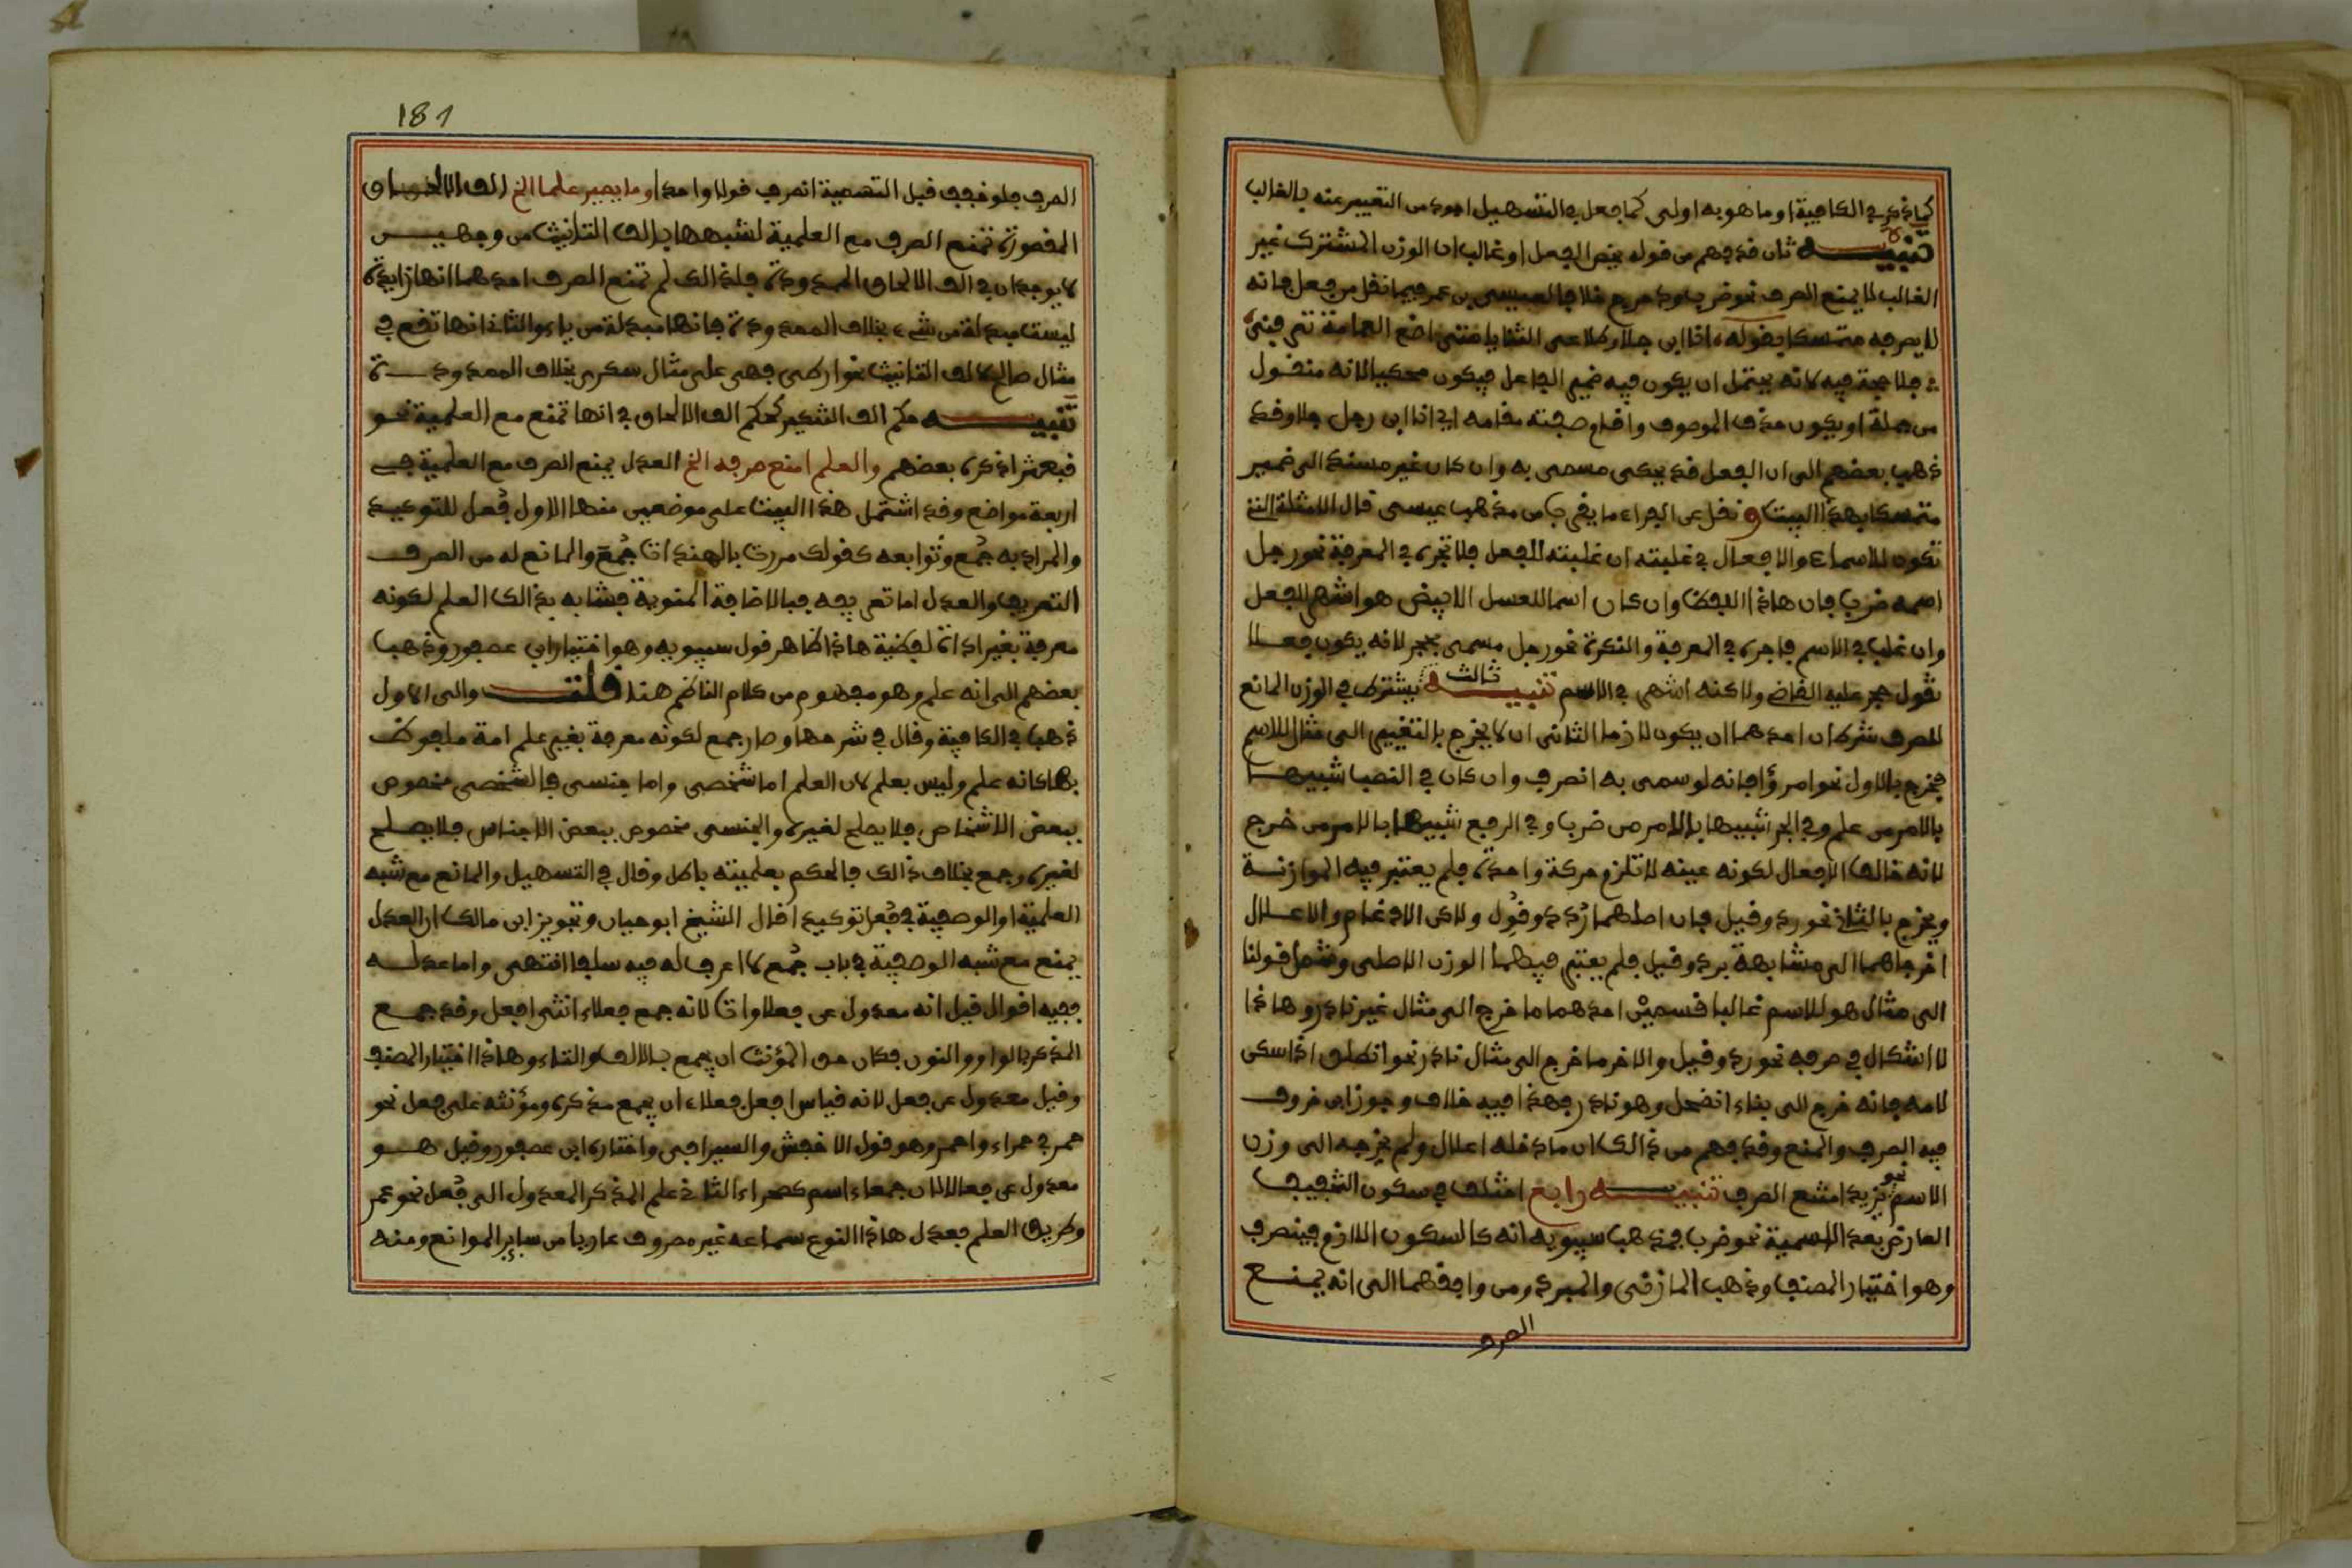 كما ذكر في الكافية او ما هو به اولى كما جعل في التسهيل اجود من التعبير عنه بالغالب
تنبيه ثان قد فهم من قوله يخص الفعل او غالب ان الوزن المشترك غير
الغالب لا يمنع الصرف نحو ضرب ودحرج خلافا لعيسى بن عمر فيما نقل من فعل فانه
لا يصرفه متمسكا بقوله انا ابن جلا وطلاع الثنايا متى اضع العمامة تعرفني
ء فلا حجة فيه لانه يحتمل ان يكون فيه ضمير الفاعل فيكون محكيا لانه منقول
من جملة او يكون حذف الموصوف واقام صفته مقامه اي انا ابن رجل جلا وقد
ذهب بعضهم الى ان الفعل قد يحكى مسمى به وان كان غير مسند الى ضمير
متمسكا بهذا البيت ونقل عن الفراء ما يقرب من مذهب عيسى قال الامثلة التي
تكون للاسماء والافعال في غلبته ان غلبته للفعل فلا تجره في المعرفة نحو رجل
اسمه ضرب فان هاذا اللفظ وان كان اسما للعسل الابيض هو اشهر للفعل
وان غلب في الاسم فاجره في المعرفة والنكرة نحو رجل مسمى بحجر لانه يكون فعلا
تقول حجر عليه القاضي ولاكنه اشهر في الاسم تنبيه ثالث يشترط في الوزن المانع
للصرف شرطان احدهما ان يكون لازما الثاني ان لا يخرج بالتغيير الى مثال للاسم
فخرج بالاول نحو امرؤ فانه لو سمى به انصرف وان كان في النصب شبيها
بالامر من علم وفي الجر شبيها بالامر من ضرب وفي الرفع شبيها بالامر من خرج
لانه خالف الافعال لكونه عينه لا تلزم حركة واحدة فلم يعتبر فيه الموازنة
ويخرج بالثاني نحو رد وقيل فان اصلهما ردد وقول ولاكن الادغام والاعلال
اخرجاهما الى مشابهة برد وقيل فلم يعتبر فيهما الوزن الاصلي وشمل قولنا
الى مثال هو للاسم غالبا قسمين احدهما ما خرج الى مثال غير نادر وهاذا
لا اشكال في صرفه نحو رد وقيل والاخر ما خرج الى مثال نادر نحو انطلق اذا سكن
لامه فانه خرج الى بناء انقحل وهو نادر فهذا فيه خلاف وجوز ابن خروف
فيه الصرف والمنع وقد فهم من ذالك ان ما دخله اعلال ولم يخرجه الى وزن
الاسم نحو يزيد امتنع الصرف تنبيه رابع اختلف في سكون التخفيف
العارض بعد التسمية نحو ضرب فمذهب سيبويه انه كالسكون اللازم فينصرف
وهو اختيار المصنف وذهب المازني والمبرد ومن وافقهما الى انه يمنع
الصرف
181
الصرف فلو خفف قبل التسمية انصرف قولا واحدا وما يصير علما الخ الف الالحاق
المقصورة تمنع الصرف مع العلمية لشبهها بالف التانيث من وجهين
لا يوجدان في الف الالحاق الممدودة فلذالك لم تمنع الصرف احدهما انها زايدة
ليست مبدلة من شيء بخلاف الممدودة فانها مبدلة من ياء والثاني انها تقع في
مثال صالح لالف التانيث نحو ارطى فهى على مثال سكرى بخلاف الممدودة
تنبيه حكم الف التكثير كحكم الف الالحاق في انها تمنع مع العلمية نحو
قبعثرا ذكره بعضهم والعلم امنع صرفه الخ العدل يمنع الصرف مع العلمية في
اربعة مواضع وقد اشتمل هذا البيت على موضعين منها الاول فعل للتوكيد
والمراد به جمع وتوابعه كقولك مررت بالهندات جمع والمانع له من الصرف
التعريف والعدل اما تعريفه فبالاضافة المنوية فشابه بذالك العلم لكونه
معرفة بغير اداة لفظية هاذا ظاهر قول سيبويه وهو اختيار ابن عصفور وذهب
بعضهم الى انه علم وهو مفهوم من كلام الناظم هنا قلت والى الاول
ذهب في الكافية وقال في شرحها وصار جمع لكونه معرفة بغير علامة ملفوظ
بها كانه علم وليس بعلم لان العلم اما شخصي واما جنسي فالشخصي مخصوص
ببعض الاشخاص فلا يصلح لغيره والجنسي مخصوص ببعض الاجناس فلا يصلح
لغيره وجمع بخلاف ذالك فالحكم بعلميته باطل وقال في التسهيل والمانع مع شبه
العلمية او الوصفية في فعل توكيدا قال الشيخ ابو حيان وتجويز ابن مالك ان العدل
يمنع مع شبه الوصفية في باب جمع لا اعرف له فيه سلفا انتهى واما عدله
ففيه اقوال قيل انه معدول عن فعلاوات لانه جمع فعلاء انثى افعل وقد جمع
المذكر بالواو والنون فكان حق المؤنث ان يجمع بالالف والتاء وهاذا اختيار المصنف
وقيل معدول عن فعل لانه قياس افعل فعلاء ان يجمع مذكره ومؤنثه على فعل نحو
حمر في حمراء واحمر وهو قول الاخفش والسيرافي واختاره ابن عصفور وقيل هو
معدول عن فعالى لان جمعاء اسم كصحراء الثاني علم المذكر المعدول الى فعل نحو عمر
وطريق العلم بعدل هاذا النوع سماعه غير مصروف عاريا من سائر الموانع ومنه